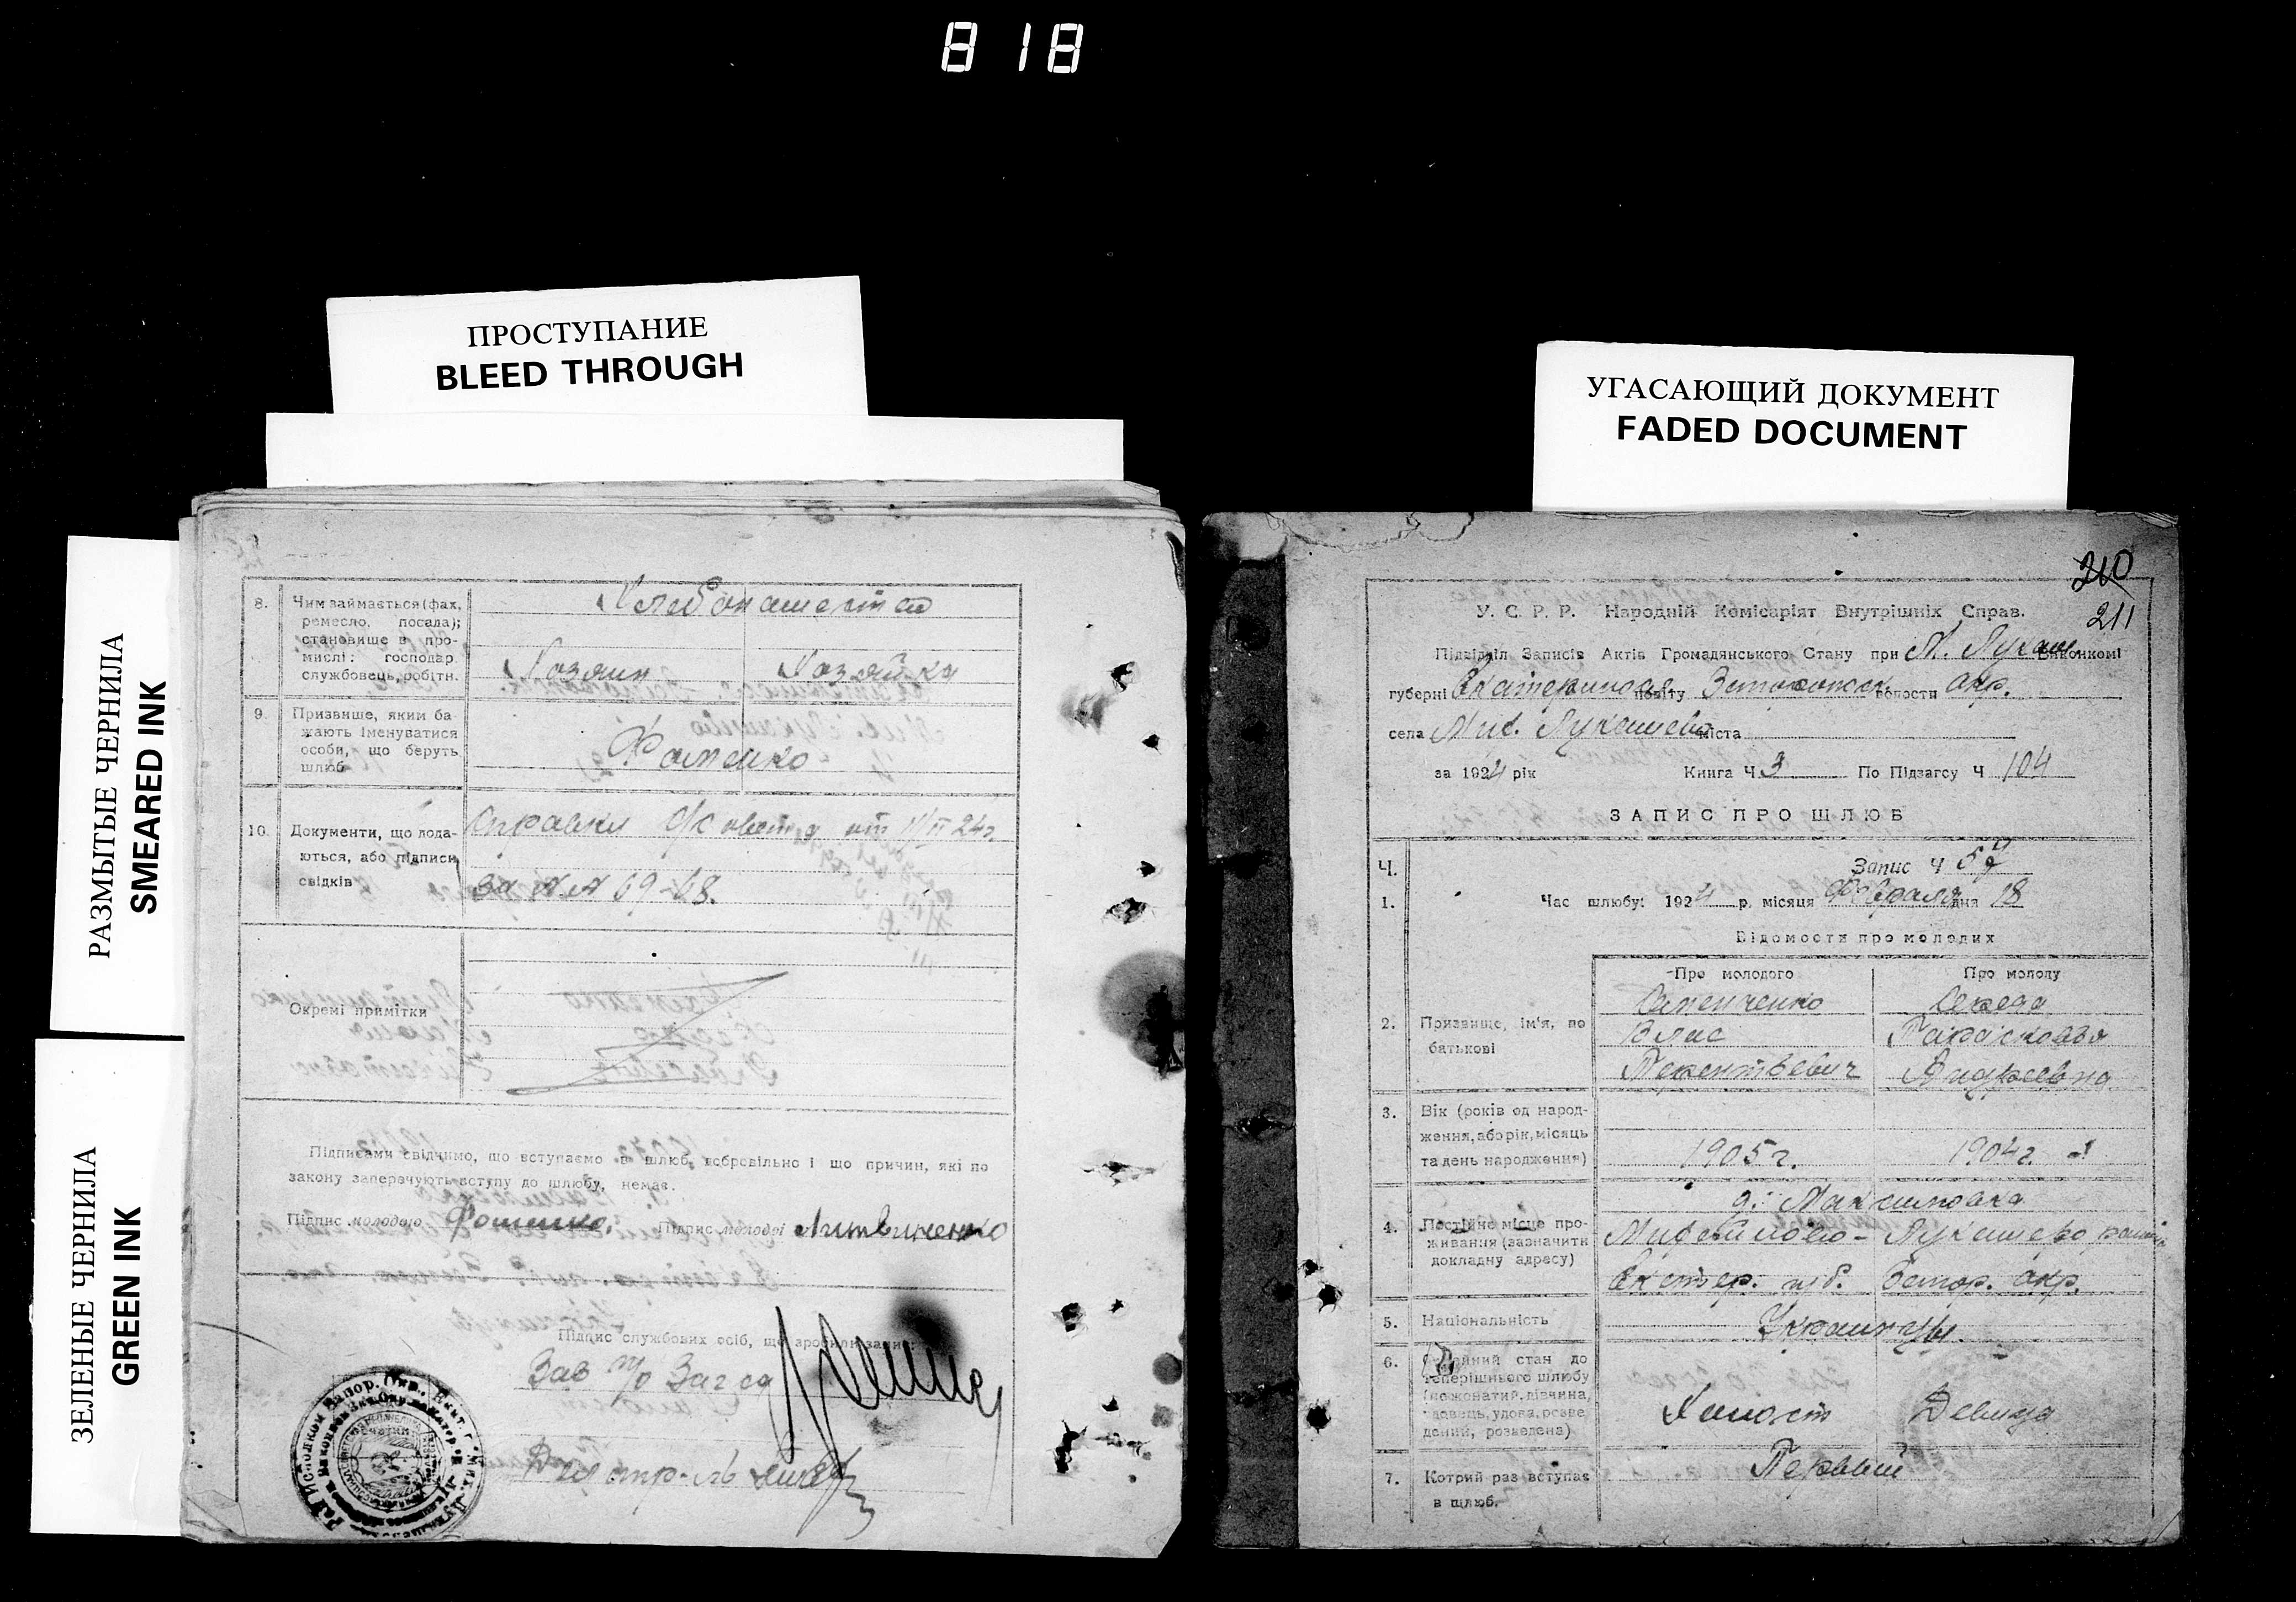 818
ПРОСТУПАНИЕ
BLEED THROUGH
УГАСАЮЩИЙ ДОКУМЕНТ
FADED DOCUMENT
РАЗМЫТЫЕ ЧЕРНИЛА
SMEARED INK
ЗЕЛЕНЫЕ ЧЕРНИЛА
GREEN INK
8. Чим займається (фах,
ремесло, посада);
становище в про-
мислі: господар
службовець, робітн.
Хлебопашество
Хозяин Хозяйка
9. Призвище, яким ба-
жають іменуватися
особи, що беруть
шлюб
Фоменко
10. Документи, що пода-
ються, або підписи
свідків
Справки от 11/II 24г.
за №№ 69-68.
Окремі примітки
Підписами свідчимо, що вступаємо в шлюб добровільно і що причин, які по
закону заперечують вступу до шлюбу, немає.
Підпис молодого Фоменко. Підпис молодої Литвиненко
Підпис службових осіб, що зробили запис:
Зав п/о Загса
210
211
У. С. Р. Р. Народній Комісаріят Внутрішніх Справ.
Підвідділ Записів Актів Громадянського Стану при М. Лукаш. Виконкомі
губерні Екатеринослав повіту Запорожск волости окр.
села Мих. Лукашево міста
за 1924 рік Книга Ч 3 По Підзагсу Ч 104
ЗАПИС ПРО ШЛЮБ
Ч. Запис Ч
1. Час шлюбу: 1924 р. місяця Февраля дня 18
Відомости про молодих
Про молодого Про молоду
2. Призвище, ім'я, по
батькові
Семенченко
Влас Парасковья
Терентьевич Андреевна
3. Вік (років од народ-
ження, або рік, місяць
та день народження)
1905 г. 1904 г.
4. Постійне місце про-
живання (зазначити
докладну адресу)
д. Максимовка
Михайлово-Лукашево
Екатер. губ. Запор. окр.
5. Національність
Украинцы
6. стан до
теперішнього шлюбу
(неженатий, дівчина,
вдовець, удова, розве
дений, розведена)
Холост Девица
7. Котрий раз вступає
в шлюб.
Первый